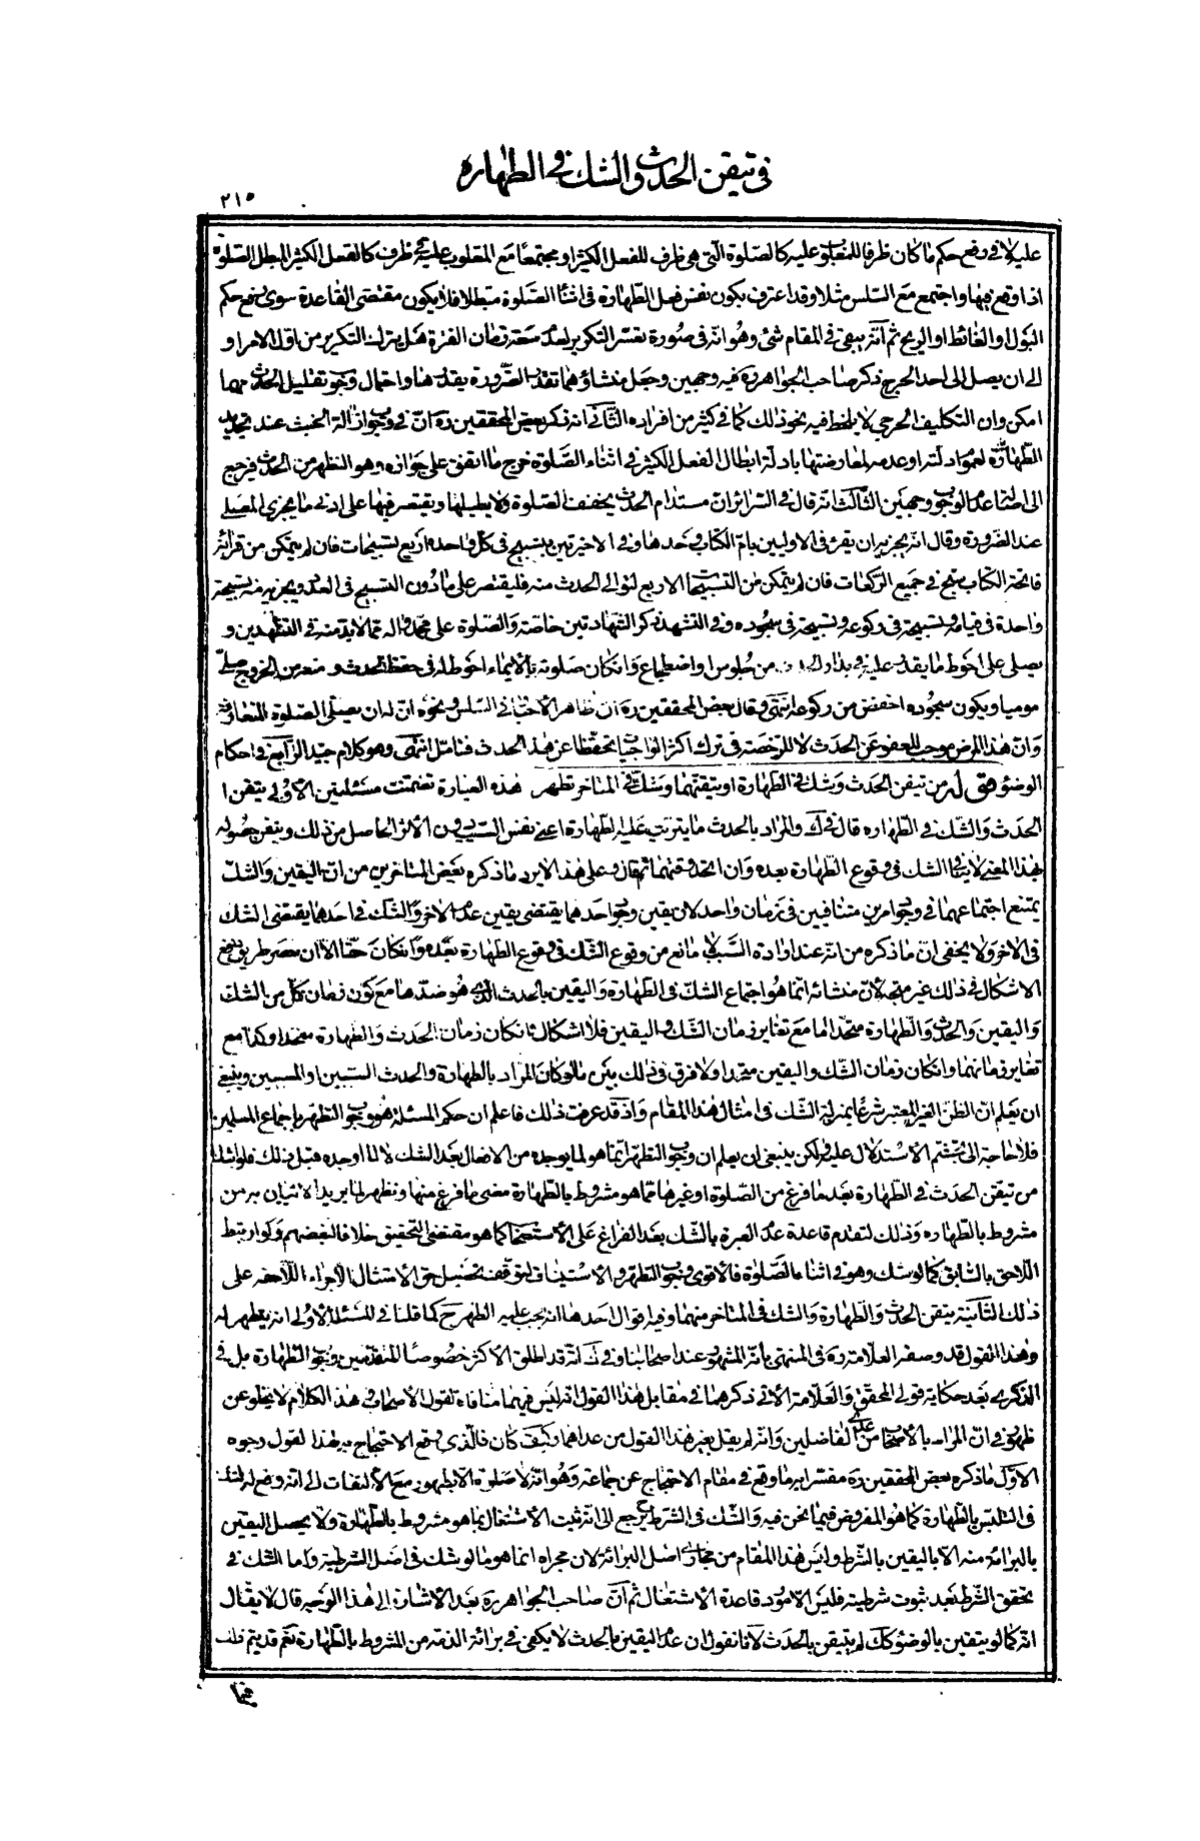 في تيقن الحدث والشك في الطهارة
٢١٥
عليه لا في وضع حكم ما كان ظرفا للمغلوب عليه كالصلوة الّتي هي ظرف للفعل الكثير او مجتمعا مع المغلوب عليه في ظرف كالفعل الكثير المبطل للصّلوة
اذا وقع فيها واجتمع مع السّلس مثلا وقد اعترف بكون نفس فعل الطّهارة في اثناء الصّلوة مبطلا فلا يكون مقتضى القاعدة سوى رفع حكم
البول والغائط او الريح ثم انّه يبقى في المقام شئ وهو انّه في صورة تعسّر التكرير لعدم سعة زمان الفترة هل يترك التكرير من اوّل الامر او
الى ان يصل الى احد الحرج ذكر صاحب الجواهر ره فيه وجهين وجعل منشأؤهما تقدّر الضّرورة بقدرها واحتمال وجوب تقليل الحدث مهما
امكن وان التكليف الحرجي لا يلحظ فيه نحو ذلك كما في كثير من افراده الثّاني انه ذكر بعض المحققين ره انّ في وجوب ازالة الخبث عند تجديد
الطّهارة لعموم ادلته او عدمه لمعارضتها بادلة ابطال الفعل الكثير في اثناء الصّلوة خرج ما اتفق على جوازه وهو التطهر من الحدث فيرجع
الى اصالة عدم الوجوب وجهين الثّالث انّه قال في السّرائر انّ مستدام الحدث يخفف الصّلوة ولا يطيلها ويقتصر فيها على ادنى ما يجزي المصلّي
عند الضّرورة وقال انّه يجزيه ان يقرء في الاوليين بامّ الكتاب وحدها وفي الاخيرتين يسبّح في كلّ واحدة اربع تسبيحات فان لم يتمكن من قرائة
فاتحة الكتاب سبّح في جميع الرّكعات فان لم يتمكن من التسبيحات الاربع لتوالي الحدث منه فليقتصر على ما دون التسبيح في العدد ويجزيه منه تسبيحة
واحدة في قيامه وتسبيحة في ركوعه وتسبيحة في سجوده وفي التشهد ذكر الشهادتين خاصّة والصّلوة على محمّد واله ممّا لا بدّ منه في التشهدين و
يصلي على احوط ما يقدر عليه في بدار من جلوس او اضطجاع وان كان صلوته بالايماء احوط له في حفظ الحدث ومنعه من الخروج صلّى
موميا ويكون سجوده اخفض من ركوعه انتهى وقال بعض المحققين ره ان ظاهر الأخبار في السّلس ونحوه انّ له ان يصلّي الصّلوة المتعارفة
وانّ هذا المرض موجب للعفو عن الحدث لا للرّخصة في ترك اكثر الواجبات تحفّظا عن هذا الحدث فتامّل انتهى وهو كلام جيّد الرّابع في احكام
الوضوء قوله من تيقن الحدث وشك في الطّهارة او تيقنهما وشكّ في المتاخر تطهر هذه العبارة تضمّنت مسئلتين الأولى يتيقن
الحدث والشّك في الطّهارة قال في ك والمراد بالحدث ما يترتب عليه الطهارة اعني نفس السّبب دون الأثر الحاصل من ذلك وتيقن حصوله
بهذا المعنى لا ينافي الشك في وقوع الطّهارة بعده وان اتحد وقتهما ثم قال وعلى هذا لا يرد ما ذكره بعض المتاخّرين من انّ اليقين والشّك
يمتنع اجتماعهما في وجود امرين متنافيين في زمان واحد لان يقين وجود احدهما يقتضي يقين عدم الاخر والشّك في احدهما يقتضي الشك
في الاخر ولا يخفى انّ ما ذكره من انّه عند ارادة السّبب لا مانع من وقوع الشّك في وقوع الطهارة بعده وان كان حقّا الّا ان حصر طريق رفع
الاشكال في ذلك غير متّجه لانّ منشائه انّما هو اجتماع الشّك في الطّهارة واليقين بالحدث الّذي هو ضدّها مع كون زمان كلّ من الشك
واليقين والحدث والطّهارة متحدا امّا مع تغاير زمان الشّك واليقين فلا اشكال ان كان زمان الحدث والطهارة متحدا وكذا مع
تغاير زمانهما وان كان زمان الشّك واليقين متحدا ولا فرق في ذلك بين ما لو كان المراد بالطّهارة والحدث السّببين او المسبّبين وينبغي
ان يعلم انّ الظنّ الغير المعتبر شرعا بمنزلة الشّك في امثال هذا المقام واذ قد عرفت ذلك فاعلم ان حكم المسئلة هو وجوب التطهّر باجماع المسلمين
فلا حاجة الى تجشّم الاستدلال عليه ولكن ينبغي ان يعلم ان وجوب التطهّر انّما هو لما يوجده من الافعال بعد الشك لا لما اوجده قبل ذلك فلو شكّ
من تيقن الحدث في الطّهارة بعد ما فرغ من الصّلوة او غيرها ممّا هو مشروط بالطّهارة مضى ما فرغ منها وتطهّر لما يريد الاتيان به من
مشروط بالطّهارة وذلك لتقدّم قاعدة عدم العبرة بالشّك بعد الفراغ على الأستصحاب كما هو مقتضى التحقيق خلافا لبعضهم ولو ارتبط
اللّاحق بالسّابق كما لو شك وهو في اثناء الصّلوة فالأقوى وجوب التطهّر والاستيناف لتوقّف تحصيل حق الامتثال لاجزاء اللّاحقة على
ذلك الثّانية تيقن الحدث والطّهارة والشك في المتاخر منهما وفيه اقوال احدها انه يجب عليه التطهّر كما قلنا في المسئلة الأولى انه يتطهر له
وهذا القول قد وصفه العلّامة ره في المنتهى بانّه المشهور عند اصحابنا وفي ك انّه قد اطلق الاكثر خصوصا المتقدّمين وجوب الطّهارة بل في
الذّكرى بعد حكاية قولي المحقّق والعلّامة الاتي ذكرهما في مقابل هذا القول انه ليس فيهما منافاة لقول الأصحاب وهذا الكلام لا يخلو عن
ظهور في انّ المراد بالأصحاب من عدى الفاضلين وانّه لم يقل بغير هذا القول من عداهما وكيف كان فالّذي وقع الاحتجاج به لهذا القول وجوه
الاوّل ما ذكره بعض المحققين ره مفسّرا به ما وقع في مقام الاحتجاج عن جماعة وهو انّه لا صلوة الّا بطهور مع الألتفات الى انّه وضع له لشكّ
في التلبّس بالطّهارة كما هو المفروض فيما نحن فيه والشّك في الشرط يرجع الى انّه ثبت الأشتغال بما هو مشروط بالطّهارة ولا يحصل اليقين
بالبرائة منه الّا باليقين بالشّرط وليس هذا المقام من مجاري اصل البرائة لان مجراه انما هو ما لو شك في اصل الشرطية وامّا الشك في
تحقق الشّرط بعد ثبوت شرطيته فليس الّا مورد قاعدة الأشتغال ثم انّ صاحب الجواهر ره بعد الأشارة الى هذا الوجه قال لا يقال
انّه كما لو يتيقن بالوضوء كك لم يتيقن بالحدث لانا نقول ان عدم اليقين بالحدث لا يكفي في برائة الذمّة من المشروط بالطّهارة نعم قد يتمّ ذلك